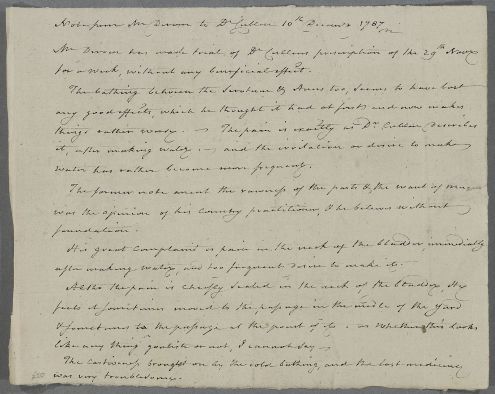 Note from Mr Dixon to Dr Cullen 10th Decemr 1787
Mr Dixon has made trial of Dr Cullens prescription of the 29th Novr
for a week, without any beneficial effect.
The bathing between the Scrotum & Anus too, seems to have lost
any good effects, which he thought it had at first; and now makes
things rather worse. — The pain is exactly as Dr Cullen describes
it, after making water — and the irritation or desire to make
water has rather become more frequent.
The former note anent the rawness of the parts & the want of
was the opinion of his Country practitioner, & he believes without
foundation.
His great Complaint is pain in the neck of the bladder immediately
after making water, and too frequent desire to make it. —
Altho the pain is chiefly seated in the neck of the bladder, He
feels it sometimes moved to the passage in the middle of the yard
& sometimes to the passage at the point of do. — Whether this looks
like any thing goutish or not, I cannot say —
The Costiveness brought on by the cold bathing, and the last medicine
was very troublesome. —